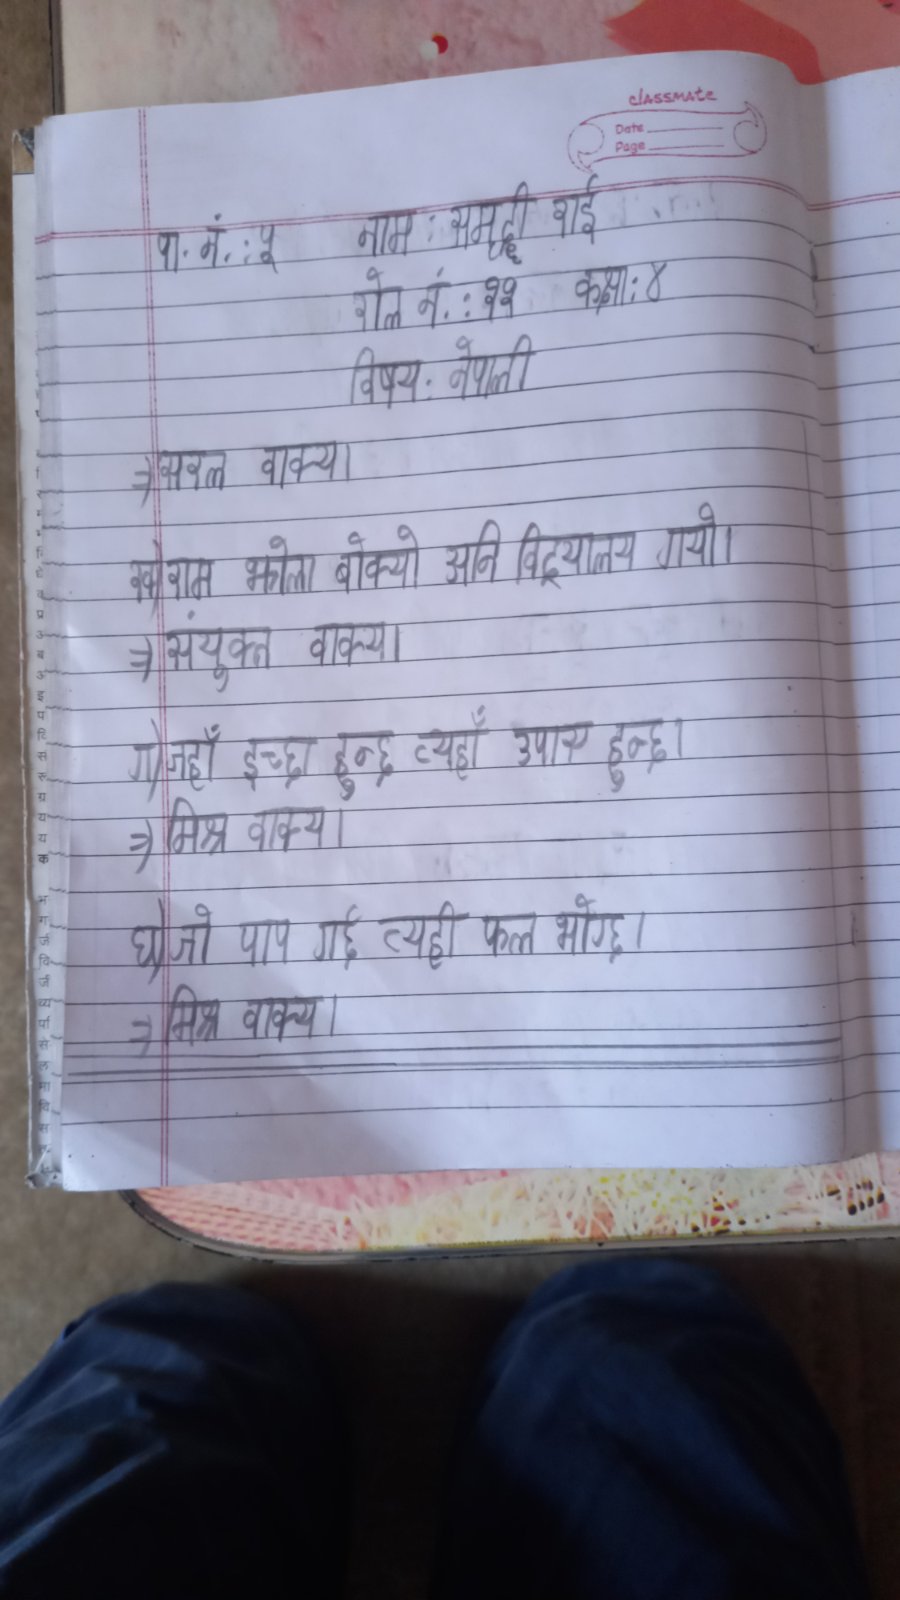 classmate
Date
Page
पा. नं. : ५ नाम : समृद्दी राई
रोल नं. : ११ कक्षा : ४
विषय : नेपाली
⇒ सरल वाक्य।
ख) राम झोला बोक्यो अनि विद्यालय गयो।
⇒ संयुक्त वाक्य।
ग) जहाँ इच्छा हुन्छ त्यहाँ उपाय हुन्छ।
⇒ मिश्र वाक्य।
घ) जो पाप गर्छ त्यही फल भोग्छ।
⇒ मिश्र वाक्य।